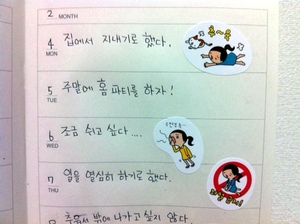 2 MONTH
4 집에서 지내기로 했다.
MON
5 주말에 홈 파티를 하자!
TUE
6 조금 쉬고 싶다....
WED
7 일을 열심히 하기로 했다.
THU
8 추워서 밖에 나가고 싶지 않다.